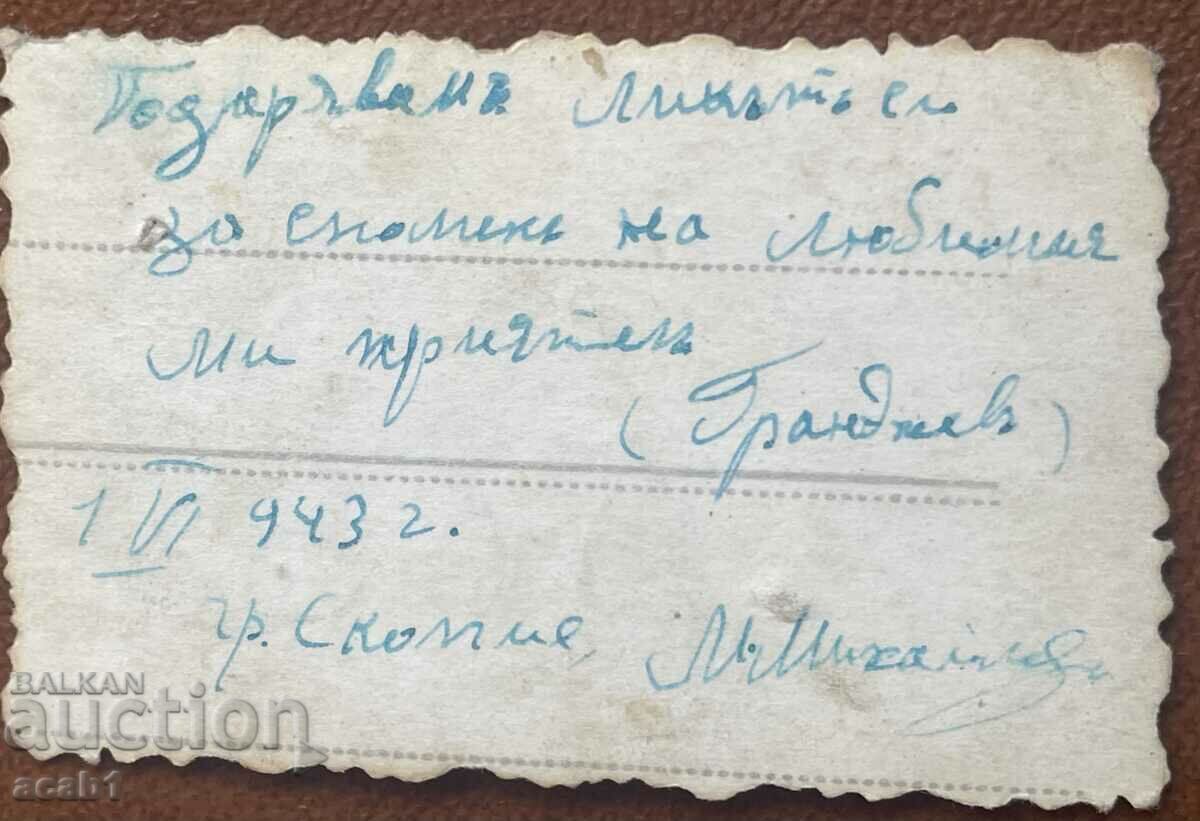 Подарявамъ ликътъ си
за споменъ на любимия
ми приятель
(Гранджевъ)
1 VI 943 г.
гр. Скопие,
BALKAN
auction
acab1